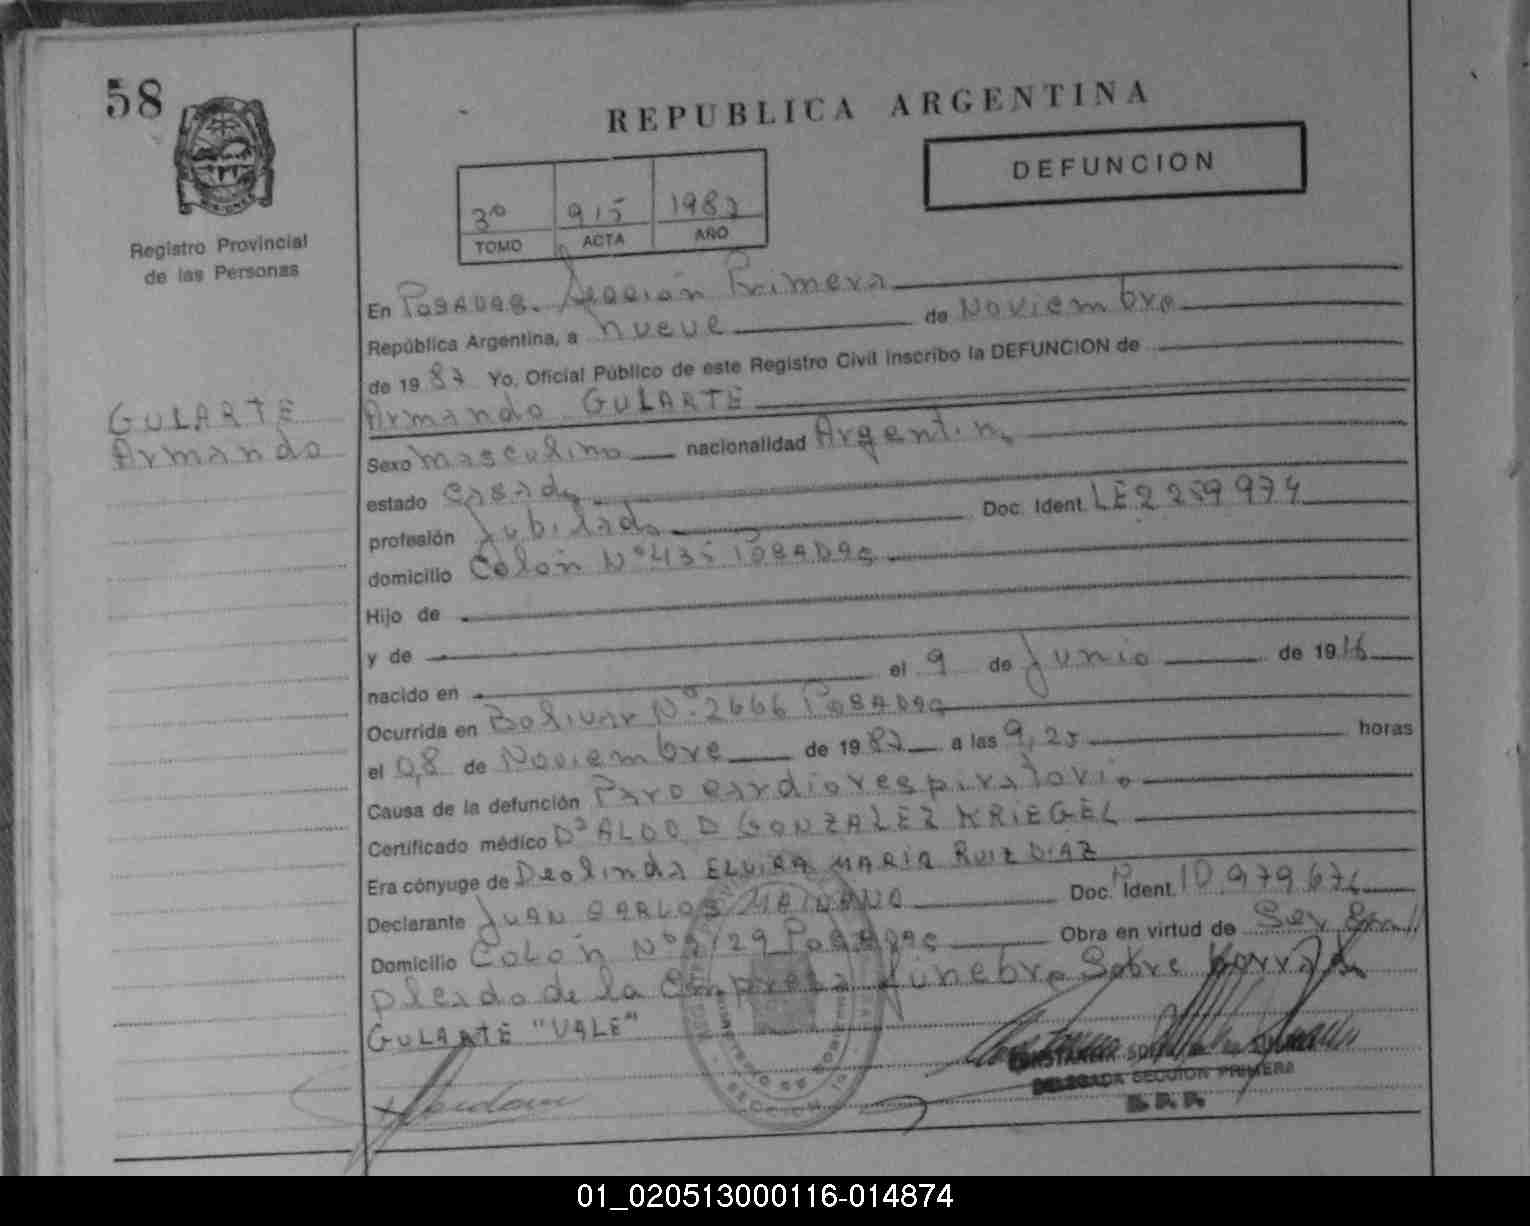 58
REPUBLICA ARGENTINA
DEFUNCION
3º 915 1987
TOMO ACTA AÑO
Registro Provincial
de las Personas
En Posadas. Sección Primera
República Argentina, a nueve de Noviembre
de 1987 Yo, Oficial Público de este Registro Civil inscribo la DEFUNCION de
GULARTE
Armando
Armando GULARTE
Sexo masculino nacionalidad Argentina
estado casado
profesión Jubilado Doc. Ident. LE 2 259 974
domicilio Colón Nº 435 POSADAS
Hijo de
y de
nacido en el 9 de Junio de 1916
Ocurrida en Bolivar Nº 2666 POSADAS
el 08 de Noviembre de 1987 a las 9,25 horas
Causa de la defunción Paro cardiorespiratorio
Certificado médico Dº ALDO D GONZALEZ KRIEGEL
Era cónyuge de Deolinda ELVIRA MARIA RUIZ DIAZ
Declarante JUAN CARLOS Doc. Ident. 10.979.676
Domicilio COLÓN Nº 2129 POSADAS Obra en virtud de Ser Em
pleado de la Empresa fúnebre Sobre borrado
GULARTE "VALE"
DELEGADA SECCION PRIMERA
R. P. P.
01_020513000116-014874